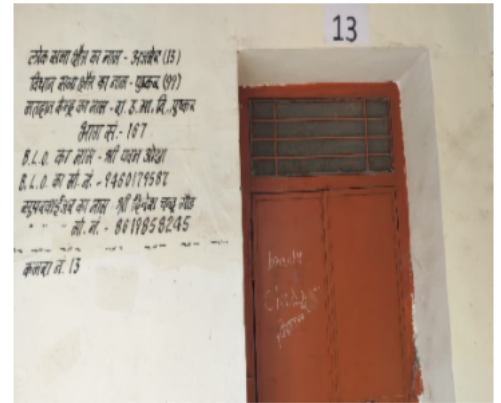 13
लोक सभा क्षेत्र का नाम - अजमेर (13)
विधान सभा क्षेत्र का नाम - पुष्कर (99)
मतदान केन्द्र का नाम - रा. उ. मा. वि., पुष्कर
भाग सं. - 167
B.L.O. का नाम - श्री पवन ओझा
B.L.O. का मो. नं. - 9460179587
सुपरवाईजर का नाम - श्री दिनेश चन्द्र गौड
" " मो. नं. - 8619858245
कमरा नं. 13